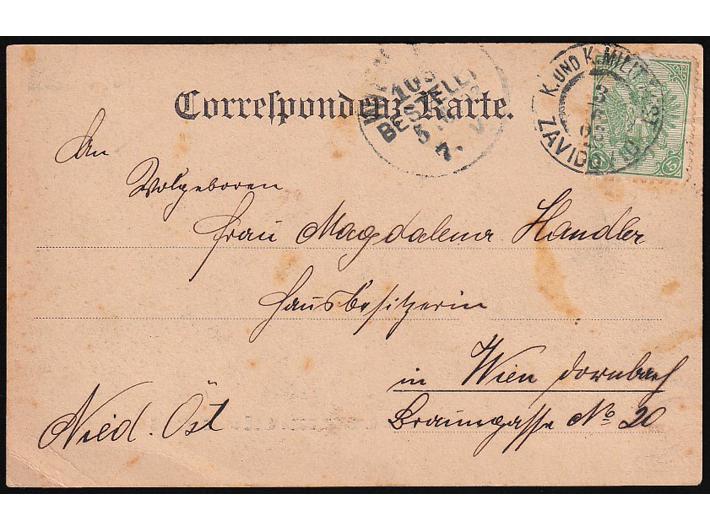 Correspondenz-Karte.
K. UND K. MILIT.
ZAVIDO
103
BESTELLT
7. V
5
An
Wolgeboren
Frau Magdalena Handler
Hausbesitzerin
in Wien Dornbach
Braungasse No 20
Nied. Öst